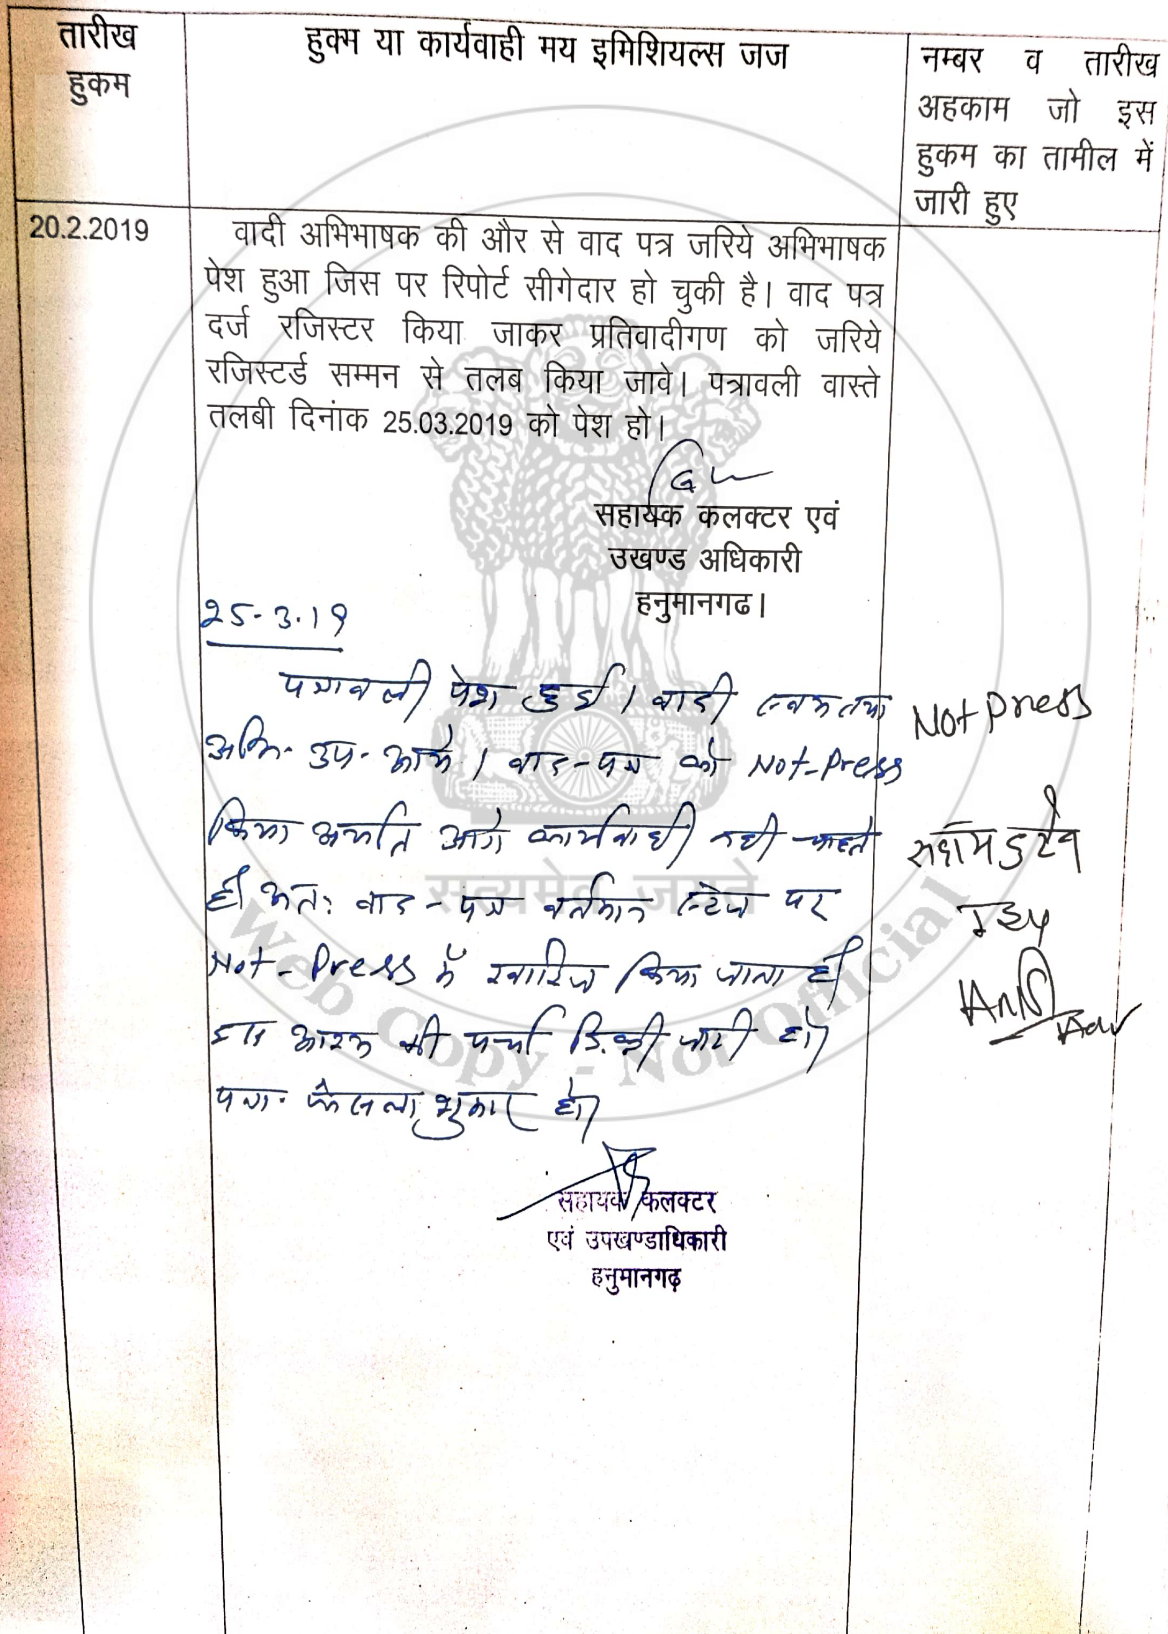 तारीख
हुकम
हुक्म या कार्यवाही मय इमिशियल्स जज
नम्बर व तारीख
अहकाम जो इस
हुकम का तामील में
जारी हुए
20.2.2019
वादी अभिभाषक की और से वाद पत्र जरिये अभिभाषक
पेश हुआ जिस पर रिपोर्ट सीगेदार हो चुकी है। वाद पत्र
दर्ज रजिस्टर किया जाकर प्रतिवादीगण को जरिये
रजिस्टर्ड सम्मन से तलब किया जावे। पत्रावली वास्ते
तलबी दिनांक 25.03.2019 को पेश हो।
सहायक कलक्टर एवं
उखण्ड अधिकारी
हनुमानगढ।
25-3-19
पत्रावली पेश हुई। वादी
अभि- उप- आये। वाद-पत्र को Not-Press
किया अर्थात आगे कार्यवाही नही चाहते
है। अतः वाद-पत्र वर्तमान स्टेज पर
Not-Press में खारिज किया जाता है।
पर्चा डिक्री जारी हो।
पत्रा- फैसला शुमार हो।
सहायक कलक्टर
एवं उपखण्डाधिकारी
हनुमानगढ़
Not Press
Adv
सत्यमेव जयते
Web Copy - Not Official